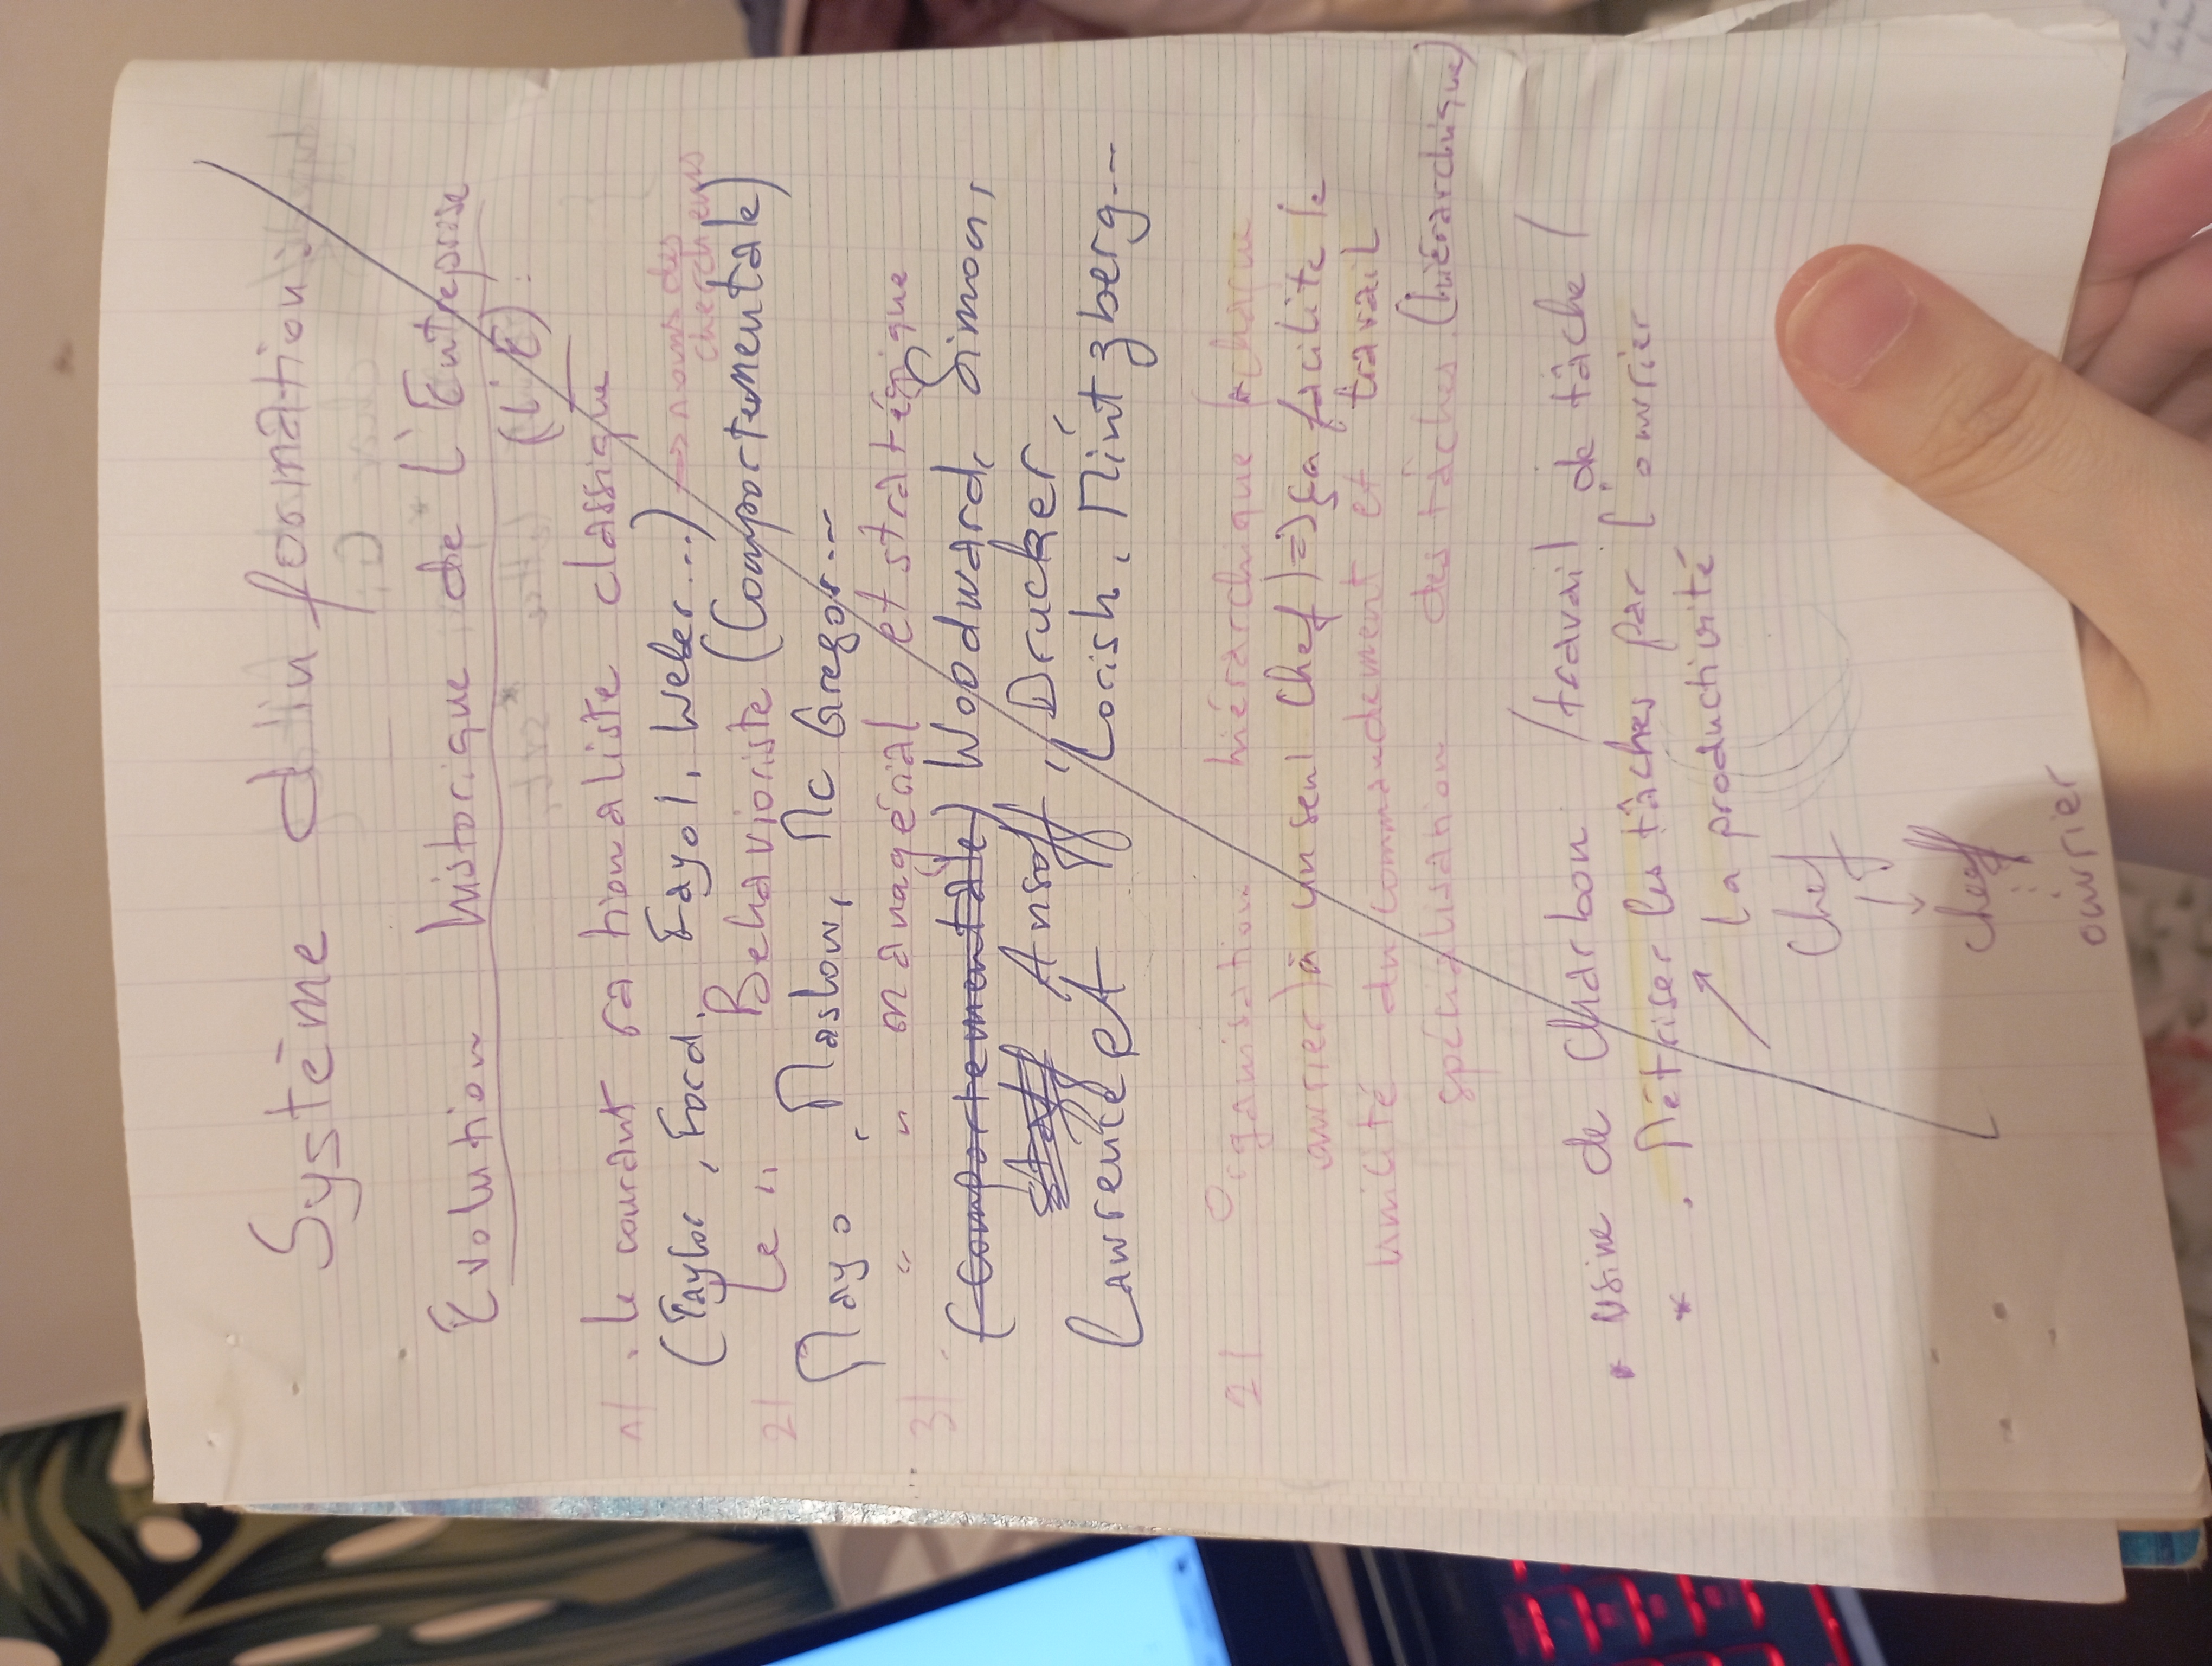 Système d'information:
Evolution historique de l'Entreprise
(l'E):
1/ . le courant rationaliste classique
(Taylor, Ford, Fayol, Weber...) → noms des
chercheurs
2/ Le " Behavioriste (Comportementale)
Mayo, Maslow, Mc Gregor...
3/ " " managérial et stratégique
(Comportementale) Woodward, Simon,
staff Ansoff, Drucker,
Lawrence et Lorish, Mintzberg...
2/ Organisation hiérarchique (chaque
ouvrier) à un seul Chef) => ça facilite le
unicité du commandement et travail
spécialisation des tâches (hiérarchique)
* usine de Charbon /travail de tâche/
* . Métriser les tâches par l'ouvrier
↗ la productivité
Chef
↓
cheff
⋮
ouvrier